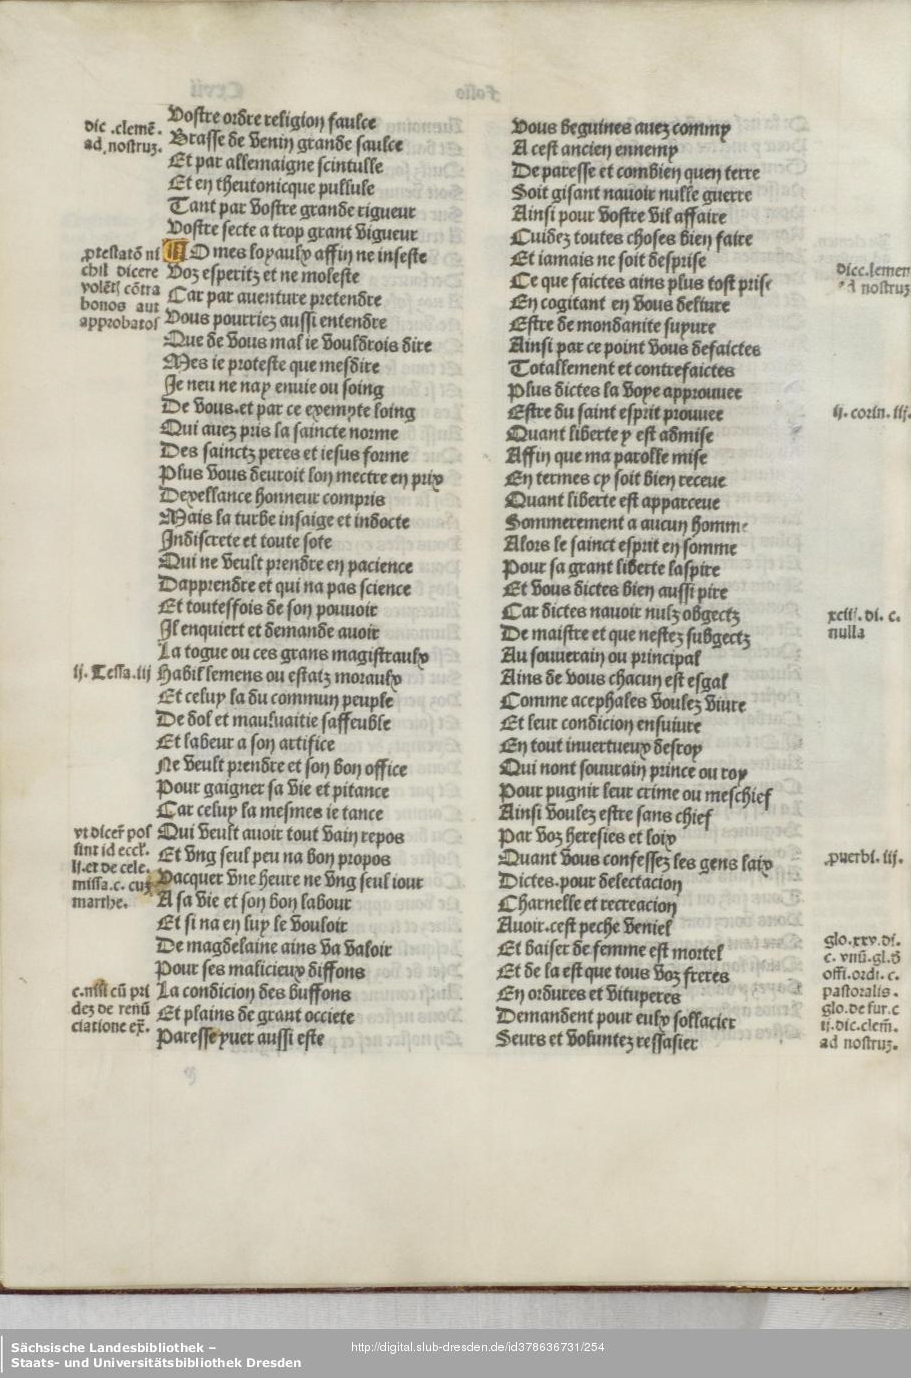 Vostre ordre religion faulce
Brasse de venin grande saulce
Et par allemaigne scintulle
Et en theutonicque pullule
Tant par vostre grande rigueur
Vostre secte a trop grant vigueur
O mes loyaulx affin ne infeste
Voz esperitz et ne moleste
Car par auenture pretendre
Vous pourriez aussi entendre
Que de vous mal ie vouldrois dire
Mes ie proteste que mesdire
Je neu ne nay enuie ou soing
De vous.et par ce exempte loing
Qui auez pris la saincte norme
Des sainctz peres et iesus forme
Plus vous deuroit lon mectre en prix
Dexellance honneur compris
Mais la turbe insaige et indocte
Jndiscrete et toute sote
Qui ne veult prendre en pacience
Dapprendre et qui na pas science
Et toutesfois de son pouuoir
Jl enquiert et demande auoir
La togue ou ces grans magistraulx
Habillemens ou estatz moraulx
Et celuy la du commun peuple
De dol et mauluaitie saffeuble
Et labeur a son artifice
Ne veult prendre et son bon office
Pour gaigner sa vie et pitance
Car celuy la mesmes ie tance
Qui veult auoir tout vain repos
Et vng seul peu na bon propos
Vacquer vne heure ne vng seul iour
A sa vie et son bon labour
Et si na en luy le vouloir
De magdelaine ains va valoir
Pour ses malicieux diffons
La condicion des buffons
Et plains de grant occiete
Paresse yuer aussi este
dic .clemē.
ad nostruz.
ꝓtestatō ni
chil dicere
volēs cōtra
bonos aut
approbatos
ij. Tessa.iij
vt dicer̄ pos
sint id eccl'.
li.et de cele.
missa.c. cuz
marthe.
c.nisi cū pri
dez de renū
ciatione ex̄.
Vous beguines auez commy
A cest ancien ennemy
De paresse et combien quen terre
Soit gisant nauoir nulle guerre
Ainsi pour vostre vil affaire
Cuidez toutes choses bien faire
Et iamais ne soit desprise
Ce que faictes ains plus tost prise
En cogitant en vous deliure
Estre de mondanite suyure
Ainsi par ce point vous defaictes
Totallement et contrefaictes
Plus dictes la voye approuuee
Estre du saint esprit prouuee
Quant liberte y est admise
Affin que ma parolle mise
En termes cy soit bien receue
Quant liberte est apparceue
Sommerement a aucun homme
Alors le sainct esprit en somme
Pour sa grant liberte laspire
Et vous dictes bien aussi pire
Car dictes nauoir nulz obgectz
De maistre et que nestez subgectz
Au souuerain ou principal
Ains de vous chacun est esgal
Comme acephales voulez viure
Et leur condicion ensuiure
En tout inuertueux desroy
Qui nont souurain prince ou roy
Pour pugnir leur crime ou meschief
Ainsi voulez estre sans chief
Par voz heresies et loix
Quant vous confessez les gens laix
Dictes.pour delectacion
Charnelle et recreacion
Auoir.cest peche veniel
Et baiser de femme est mortel
Et de la est que tous voz freres
En ordures et vituperes
Demandent pour eulx sollacier
Seurs et voluntez ressasier
dicc.lemen
ad nostruz
ij. corin. iij.
xciij. di. c.
nulla
ꝓuerbi. iij.
glo.xxv.di.
c. vnū.gl.d
offi.ordi. c.
pastoralis.
glo.de fur.c
ij.dic.clem̄.
ad nostruz.
Sächsische Landesbibliothek –
Staats- und Universitätsbibliothek Dresden
http://digital.slub-dresden.de/id378636731/254